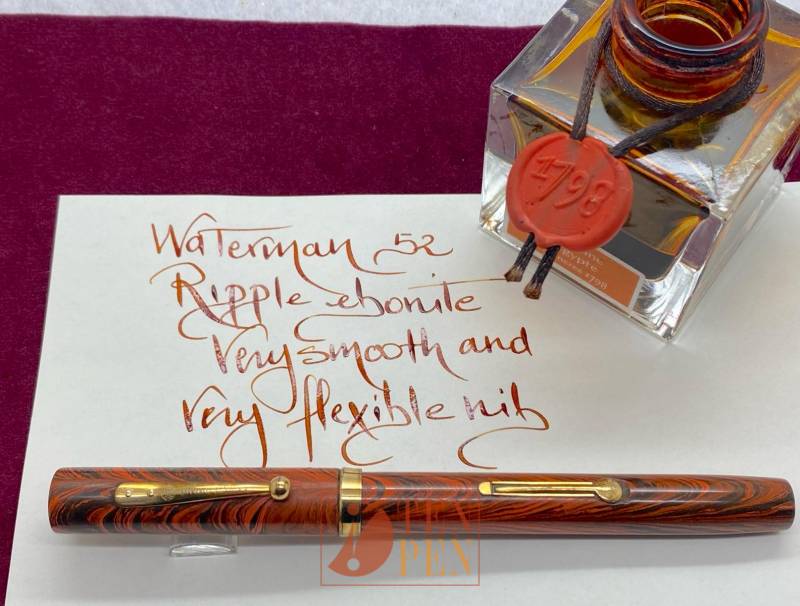 Waterman 52
Ripple ebonite
Very smooth and
very flexible nib
1798
1798
PEN
PEN